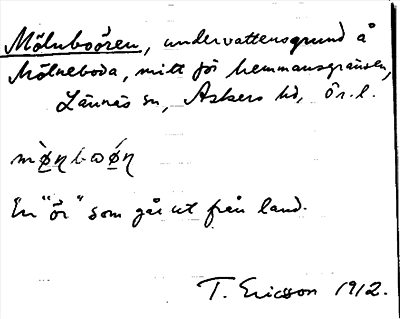 Mölnboören, undervattensgrund å
Mölneboda, mitt för hemmansgränsen,
Lännäs sn, Askers hd, Ör. l.
En "ör" som går ut från land.
T. Ericsson 1912.